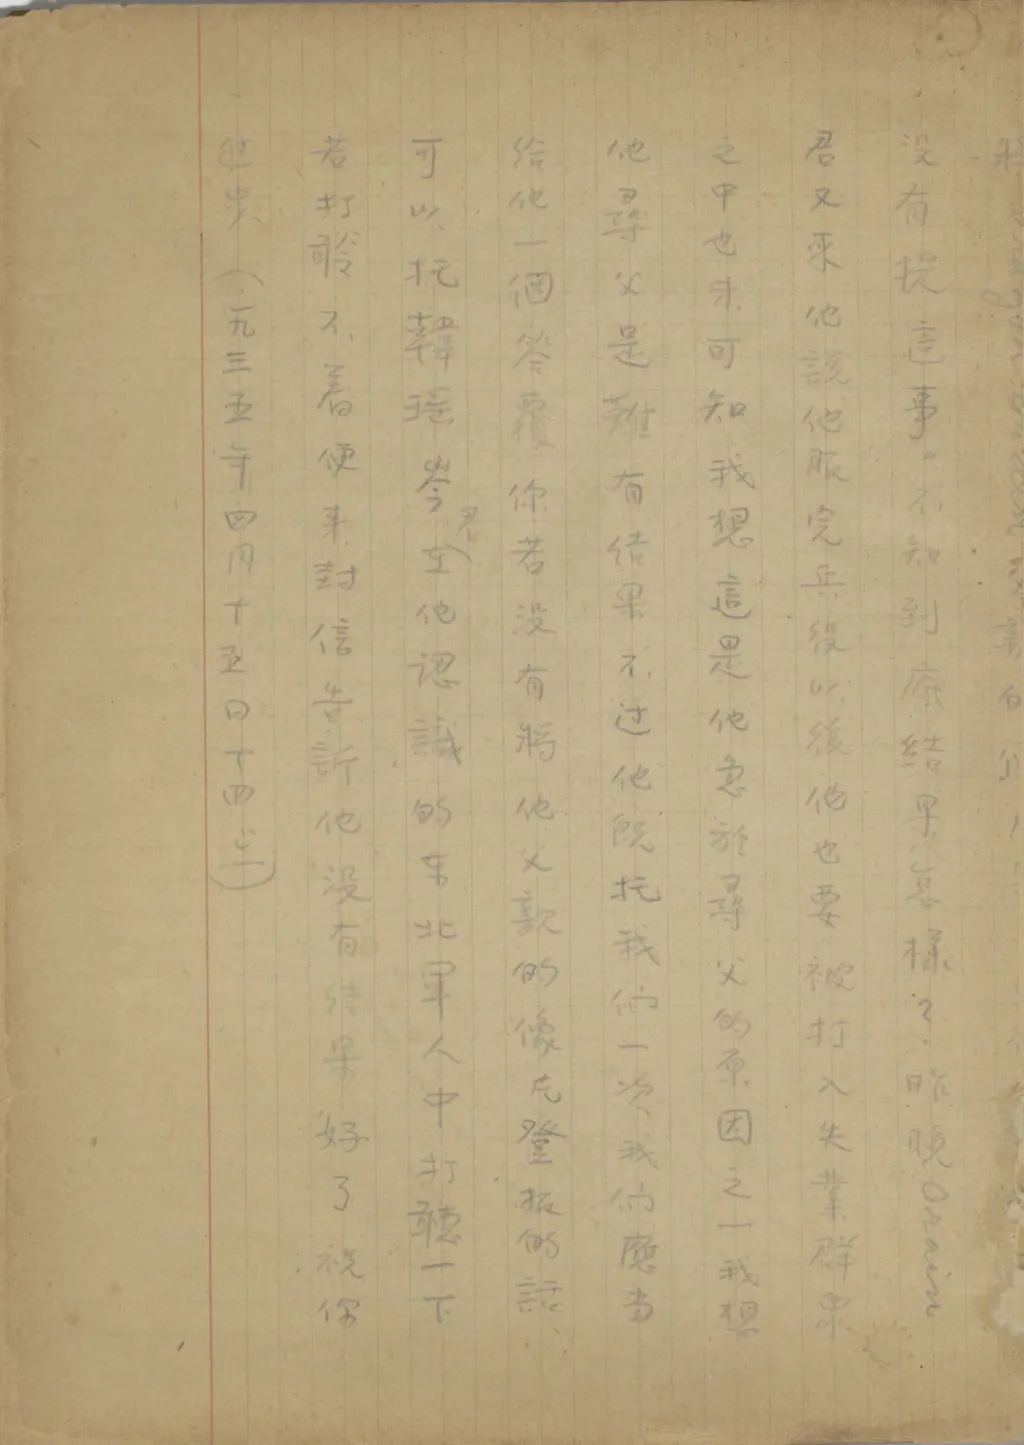 没有提這事。不知到底結果怎樣？昨晚Drain
君又來他說他服完兵役以後他也要被打入失業群眾
之中也未可知我想這是他急於尋父的原因之一我想
他尋父是難有结果不过他既托我們一次我們應当
给他一個答覆你若没有將他父親的像片登报的話
可以托韓瑶岑君在他認識的东北軍人中打聽一下
若打聆不着便来封信告訴他没有结果好了祝你
進步（一九三五年四月十五日十四点）